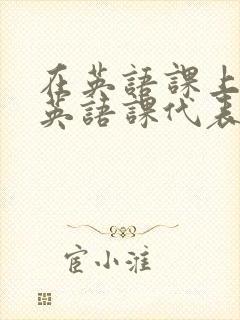 在英語課上
英語課代表
宦小淮